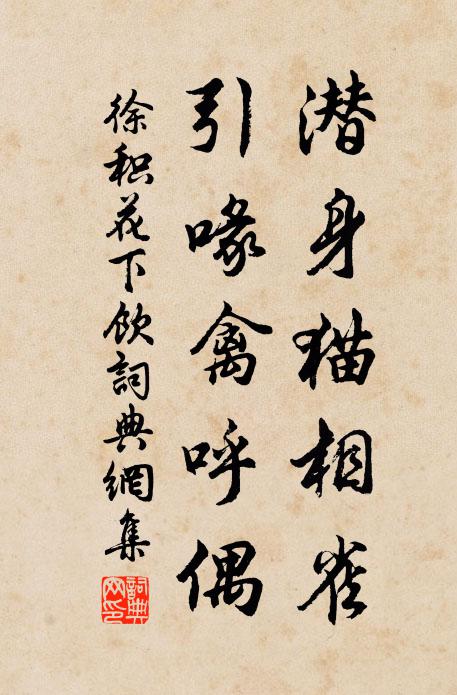 潜身猫相雀
引喙禽呼偶
徐积花下饮詞典網集
詞典
网印